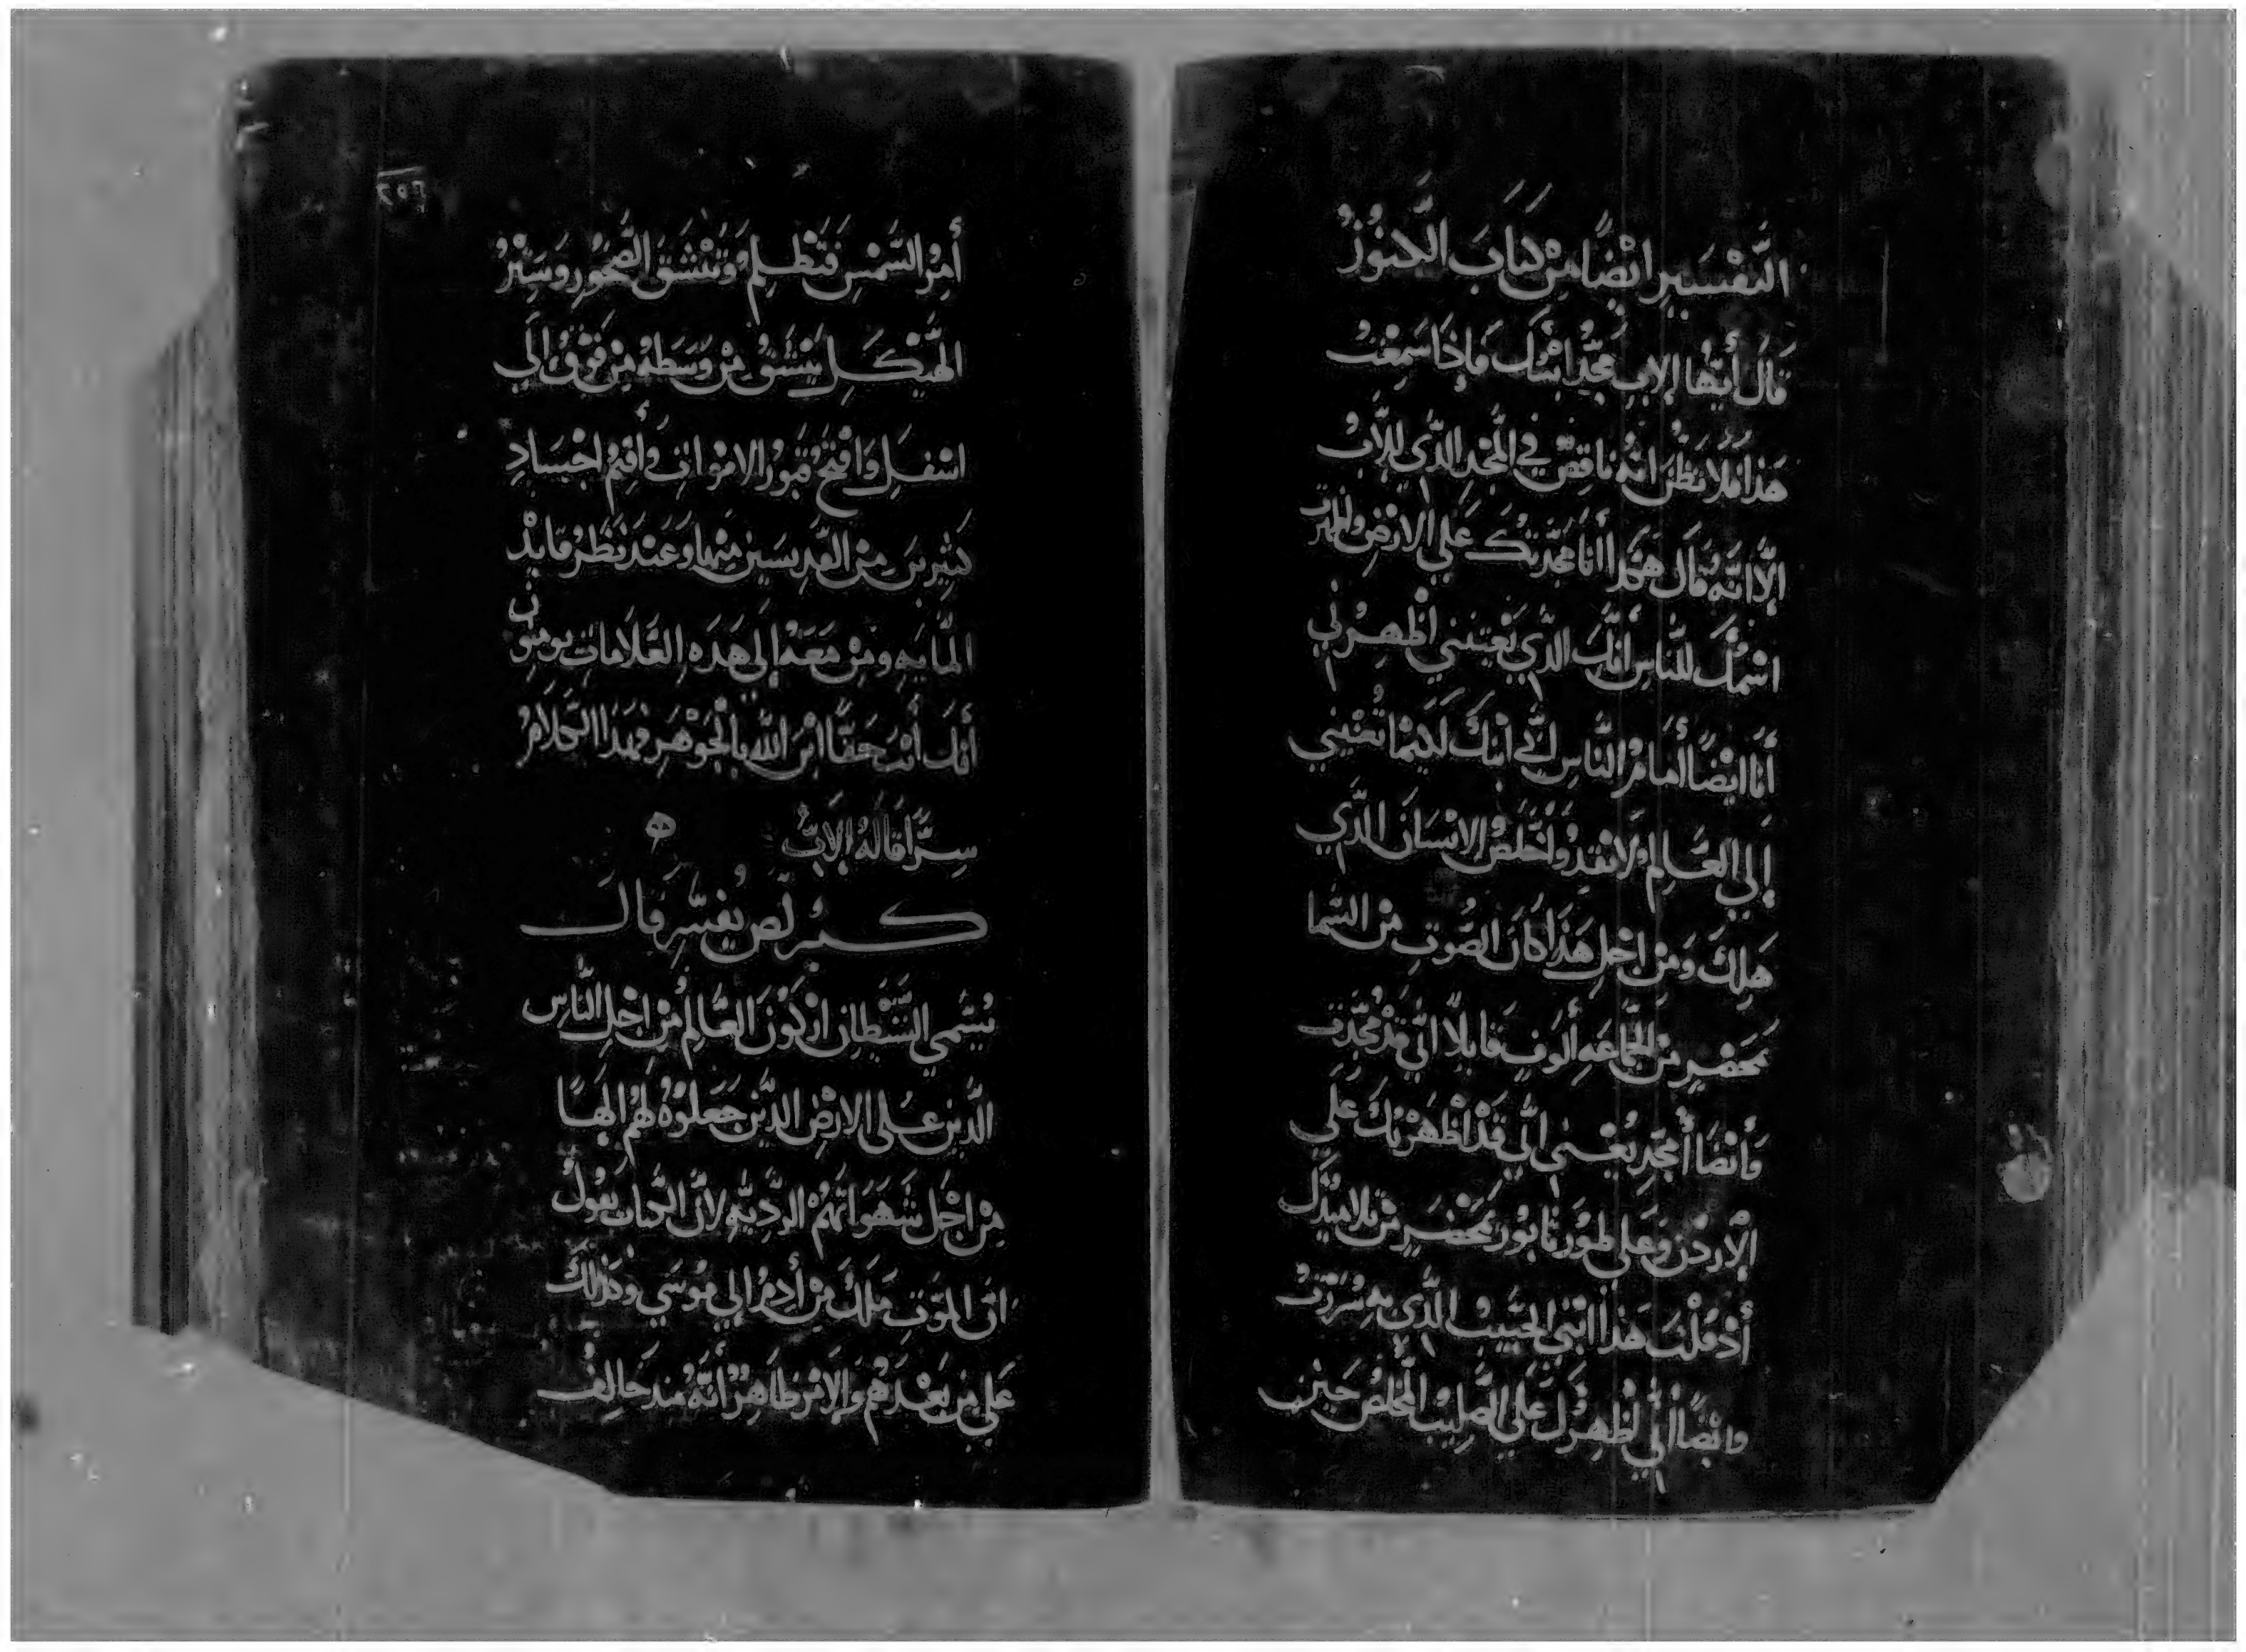 التفسير ايضًا من كتاب الكنوز
قال أيها الاب مجد ابنك فإذا سمعت
هذا فلا تظن انه ناقص في المجد الذي للاب
إلا انه قال هكذا أنا مجدتك على الارض واظهرت
اسمك للناس أنك الذي بعثتني أظهرني
أنا ايضًا أمام الناس اني ابنك لكيما تعيني
إلي العالم لانقد وأخلص الإنسان الذي
هلك ومن اجل هذا كان الصوت من السما
بمحضر من الجماعه ألوف قايلا اني قد مجدت
وأيضا أمجد يعني اني قد اظهرتك على
الأردن وعلى طور تابور بمحضر من تلاميذك
أذ قلت هذا ابني الحبيب الذي به سررت
وايضًا اني اظهرك علي الصليب المخلص حين
٢٥٦
أمر الشمس فتظلم وتنشق الصخور وستر
الهيكل ينشق من وسطه من فوق إلي
اسفل وافتح قبور الاموات وأقيم اجساد
كثيرين من القديسين منهما وعند نظر قايد
المايه ومن معه إلي هذه العلامات يومنون
أنك أنت حقًا ابن الله بالجوهر فهذا الكلام
سرًا قاله الاب
كيرلص يفسر قال
يسمي الشيطان اركون العالم من اجل الناس
الذين على الارض الذين جعلوه لهم الهًا
من اجل شهواتهم الرديه لان الكتاب يقول
ان الموت ملك من أدم إلي موسي وكذلك
علي من بعدهم والامر ظاهر أنه منذ خالف